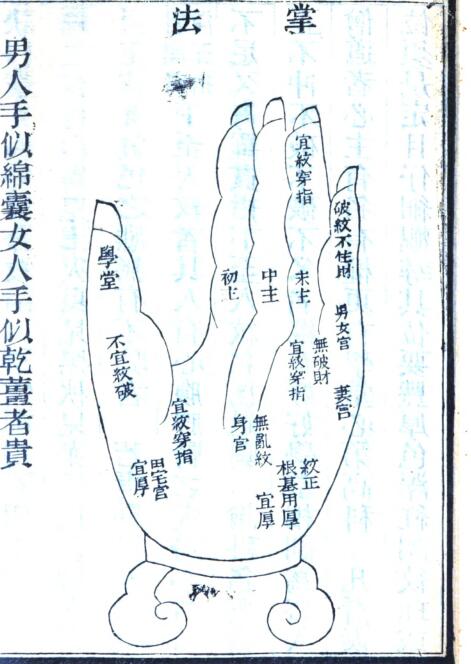 掌法
宜紋穿指
破紋不住財
男女宮
妻宮
末主
無破財
宜紋穿指
中主
初主
紋正
根基用厚
宜厚
無亂紋
身宮
學堂
不宜紋破
宜紋穿指
田宅宮
宜厚
男人手似綿囊女人手似乾薑者貴